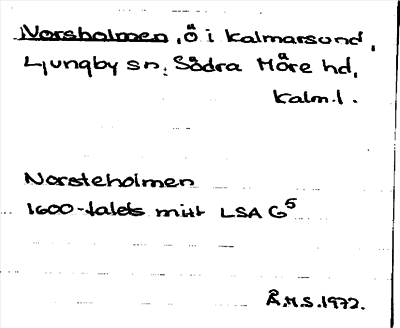 Norsholmen, ö i Kalmarsund,
Ljungby sn, Södra Möre hd,
Kalm.l.
Norsteholmen
1600-talets mitt LSA G5
Å.M.S. 1972.